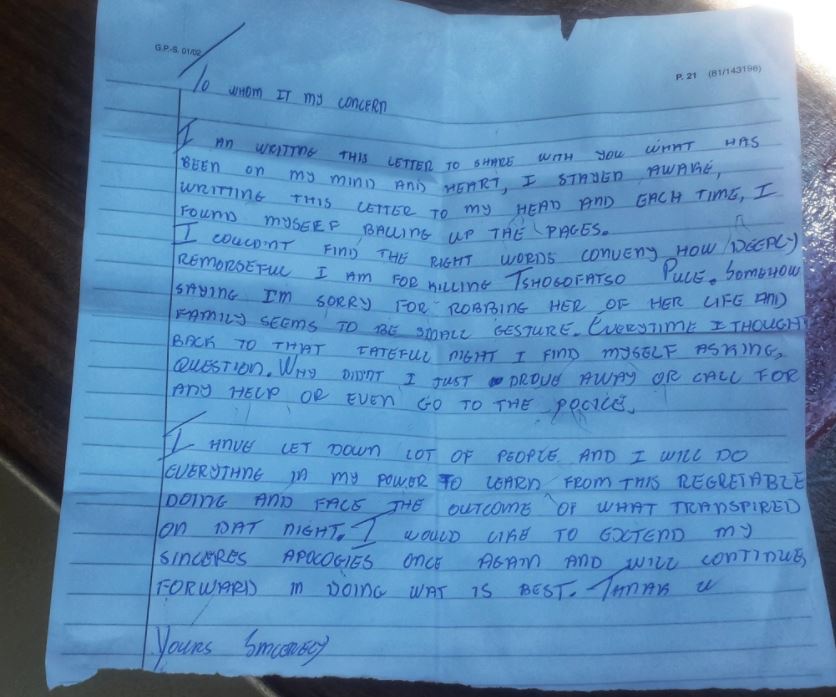 G.P.-S. 01/02
P. 21 (81/143196)
To WHOM IT MY CONCERN
I AM WRITTNG THIS LETTER TO SHARE WITH YOU WHAT HAS
BEEN ON MY MIND AND HEART, I STAYED AWAKE,
WRITTING THIS LETTER TO MY HEAD AND EACH TIME, I
FOUND MYSERF BALLING UP THE PAGES.
I COULDN'T FIND THE RIGHT WORDS CONVENY HOW DEEPLY
REMORSEFUL I AM FOR KILLING TSHOGOFATSO PULE. SOMEHOW
SAYING I'M SORRY FOR ROBBING HER OF HER LIFE AND
FAMILY SEEMS TO BE SMALL GESTURE. EVERYTIME I THOUGHT
BACK TO THAT FATEFUL NIGHT I FIND MYSELF ASKING,
QUESTION. WHY DIDN'T I JUST DROVE AWAY OR CALL FOR
ANY HELP OR EVEN GO TO THE POCILE.
I HAVE LET DOWN LOT OF PEOPLE AND I WILL DO
EVERYTHNG IN MY POWER TO LEARN FROM THIS REGRETABLE
DOING AND FACE THE OUTCOME OF WHAT TRANSPIRED
ON DAT NIGHT. I WOULD LIKE TO EXTEND MY
SINCERES APOLOGIES ONCE AGAIN AND WILL CONTINUE,
FORWARD IN DOING WAT IS BEST. THANK U
YOURS SINCERELY